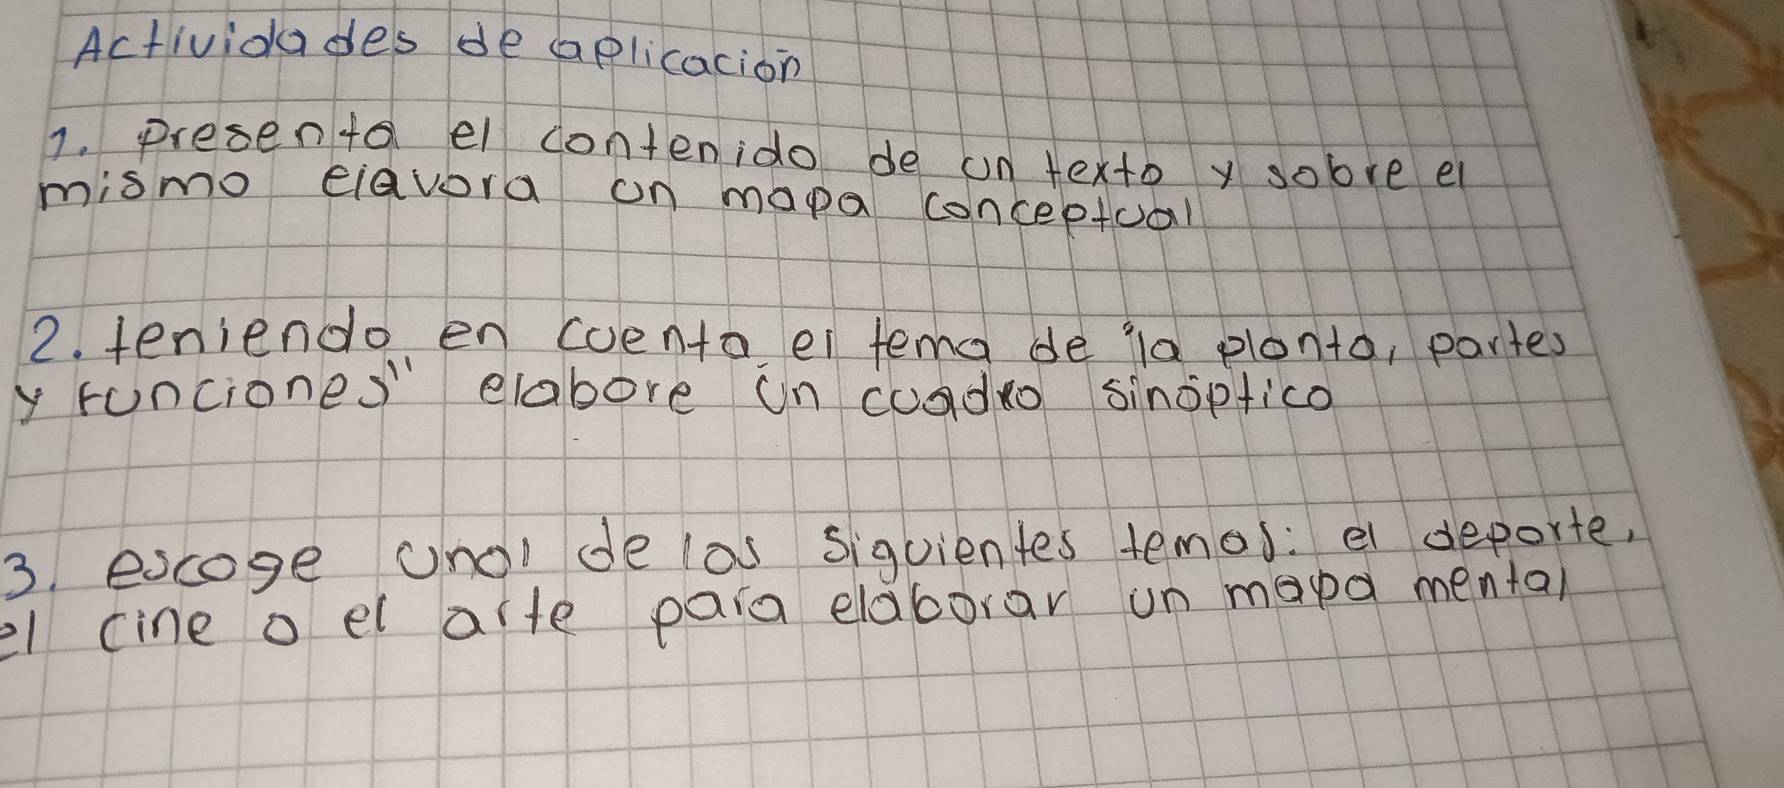 Actividades de aplicación
1. presenta el contenido de un texto y sobre el
mismo elavora un mapa conceptual
2. teniendo en cuenta el tema de "la planta, partes
y funciones" elabore un cuadro sinóptico
3. escoge uno de los siguientes temas: el deporte,
el cine o el arte para elaborar un mapa mental